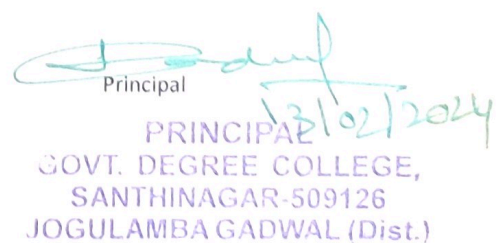 Principal
13/02/2024
PRINCIPAL
GOVT. DEGREE COLLEGE,
SANTHINAGAR-509126
JOGULAMBA GADWAL (Dist.)